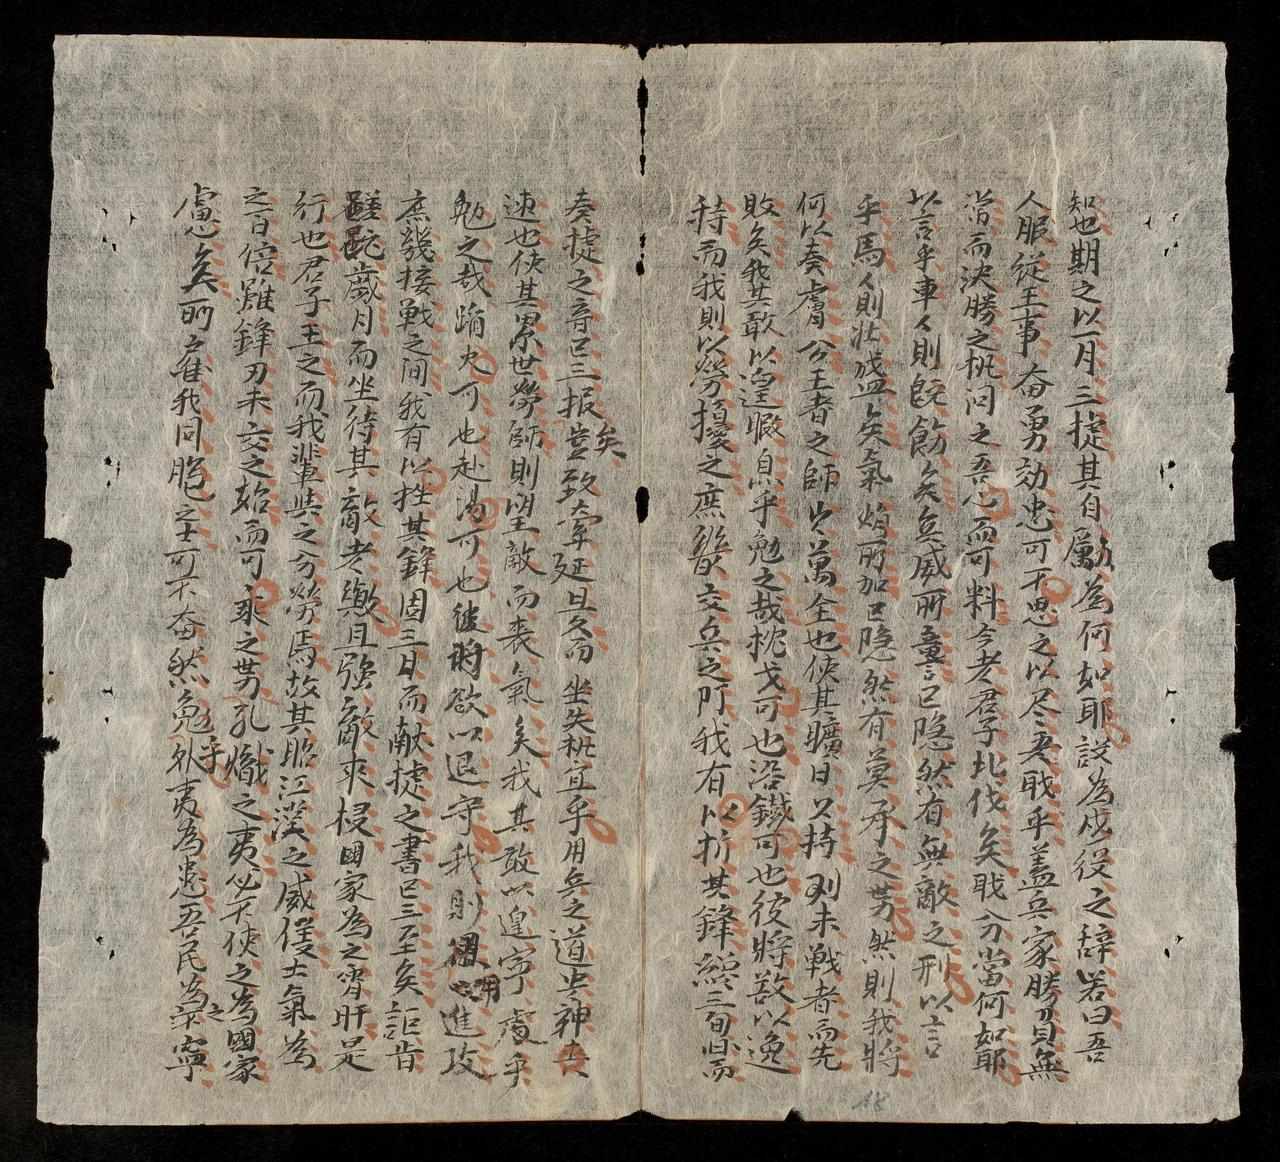 知也期之以一月三捷其自勵為何如耶設為戍役之辞若曰吾
人服從王事奋勇効忠可不思之以尽吾戝乎蓋兵家勝負無
常而決勝之机问之吾心而可料今老君子北伐矣戝分當何如耶
以言乎車人則既飭矣兵威所臺已隐然有無敵之刑以言
乎馬人則壮盛矣氣焰所加已隐然有莫承之势然則我將
何以奏膚公王者之師出萬全也使其曠日久持則未戰者而先
敗矣我其敢以遑暇息乎勉之哉枕戈可也沿鐵可也彼將敌以逸
待而我則以劳擾之庶幾交兵之间我有以折其鋒終三旬而
奏捷之音已三报矣豈致牽延且久而坐失机宜乎用兵之道貴神
速也使其累世劳師則望敵而丧氣矣我其敢以遑寧處乎
勉之哉蹈火可也赴湯可也彼將欲以退守我則用以進攻
庶幾接戰之间我有以挫其鋒固三日而献捷之書已三至矣詎肯
蹉跎歲月而坐待其敵老幾且强敵來侵国家為之宵旰足
行也君子王之而我輩共之分劳焉故其昭江漢之威僕士氣為
之百倍雖鋒刃未交之始而可乘之势孔熾之夷必不使之為國家
慮矣所雇我同胞之士可不奋然勉乎外夷為患吾民為之不寧